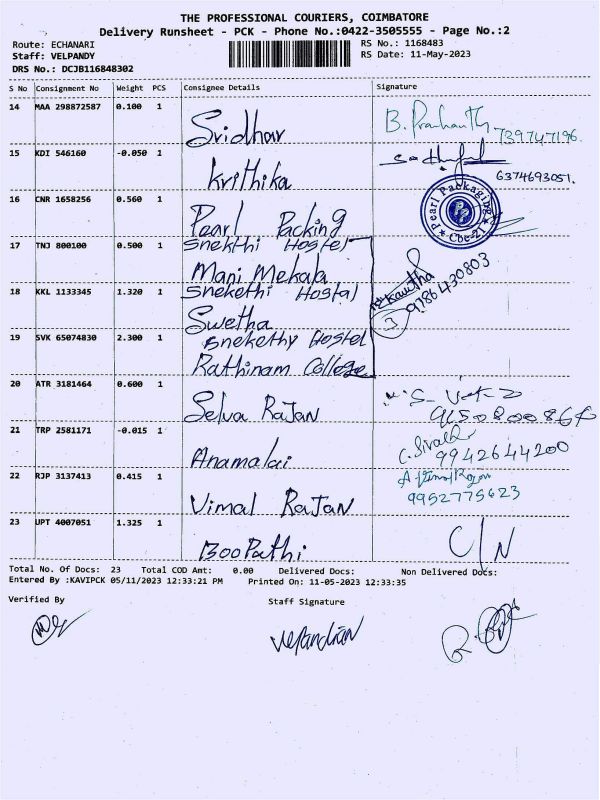 THE PROFESSIONAL COURIERS, COIMBATORE
Delivery Runsheet - PCK - Phone No.:0422-3505555 - Page No.:2
Route: ECHANARI
RS No.: 1168483
Staff: VELPANDY
RS Date: 11-May-2023
DRS No.: DCJB116848302
S No Consignment No Weight PCS Consignee Details Signature
14 MAA 298872587 0.100 1 Sridhar B. Prashanth 739747196
15 KDI 546160 -0.050 1 Krithika 6374693051.
16 CNR 1658256 0.560 1 Pearl Packing Pearl Packaging Cbe-21
17 TNJ 800100 0.500 1 Snekthi Hostel
Mani Mekala
18 KKL 1133345 1.320 1 Snekethi Hostal Kavitha 9786430803
Swetha 3
19 SVK 65074830 2.300 1 Snekethy Hostel
Rathinam College
20 ATR 3181464 0.600 1 Selva Rajan
21 TRP 2581171 -0.015 1 Anamalai 9942644200
22 RJP 3137413 0.415 1 Vimal Rajan 9952775623
23 UPT 4007051 1.325 1 Boopathi C/N
Total No. Of Docs: 23 Total COD Amt: 0.00 Delivered Docs: Non Delivered Docs:
Entered By :KAVIPCK 05/11/2023 12:33:21 PM Printed On: 11-05-2023 12:33:35
Verified By Staff Signature